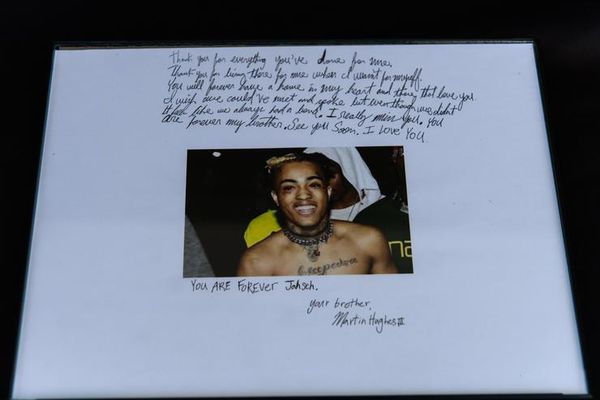 Thank you for everything you've done for me.
Thank you for being there for me when I wasn't for myself.
You will forever have a home in my heart and those that love you
I wish we could've met and spoke but even though we didn't
It feels like we always had a bond. I really miss you. You
are forever my brother. See you Soon. I LOVE YOU.
YOU ARE FOREVER Jahseh.
your brother,
Martin Hughes III